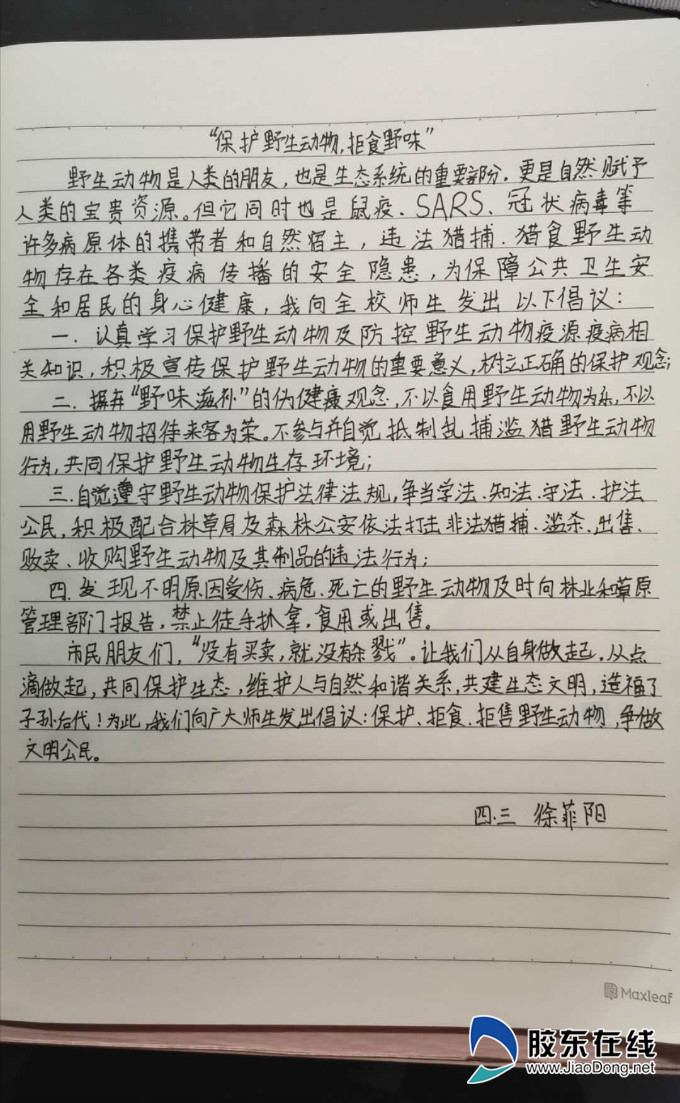 “保护野生动物,拒食野味”
野生动物是人类的朋友，也是生态系统的重要部分，更是自然赋予
人类的宝贵资源。但它同时也是鼠疫、SARS、冠状病毒等
许多病原体的携带者和自然宿主，违法猎捕、猎食野生动
物存在各类疫病传播的安全隐患，为保障公共卫生安
全和居民的身心健康，我向全校师生发出以下倡议：
一、认真学习保护野生动物及防控野生动物疫源疫病相
关知识，积极宣传保护野生动物的重要意义，树立正确的保护观念；
二、摒弃“野味滋补”的伪健康观念，不以食用野生动物为乐，不以
用野生动物招待来客为荣。不参与并自觉抵制乱捕滥猎野生动物
行为，共同保护野生动物生存环境；
三、自觉遵守野生动物保护法律法规，争当学法、知法、守法、护法
公民，积极配合林草局及森林公安依法打击非法猎捕、滥杀、出售、
贩卖、收购野生动物及其制品的违法行为；
四、发现不明原因受伤、病危、死亡的野生动物及时向林业和草原
管理部门报告，禁止徒手扒拿，食用或出售。
市民朋友们，“没有买卖，就没有杀戮”。让我们从自身做起，从点
滴做起，共同保护生态，维护人与自然和谐关系，共建生态文明，造福了
子孙后代！为此，我们向广大师生发出倡议：保护、拒食、拒售野生动物，争做
文明公民。
四.三 徐菲阳
Maxleaf
胶东在线
www.JiaoDong.net